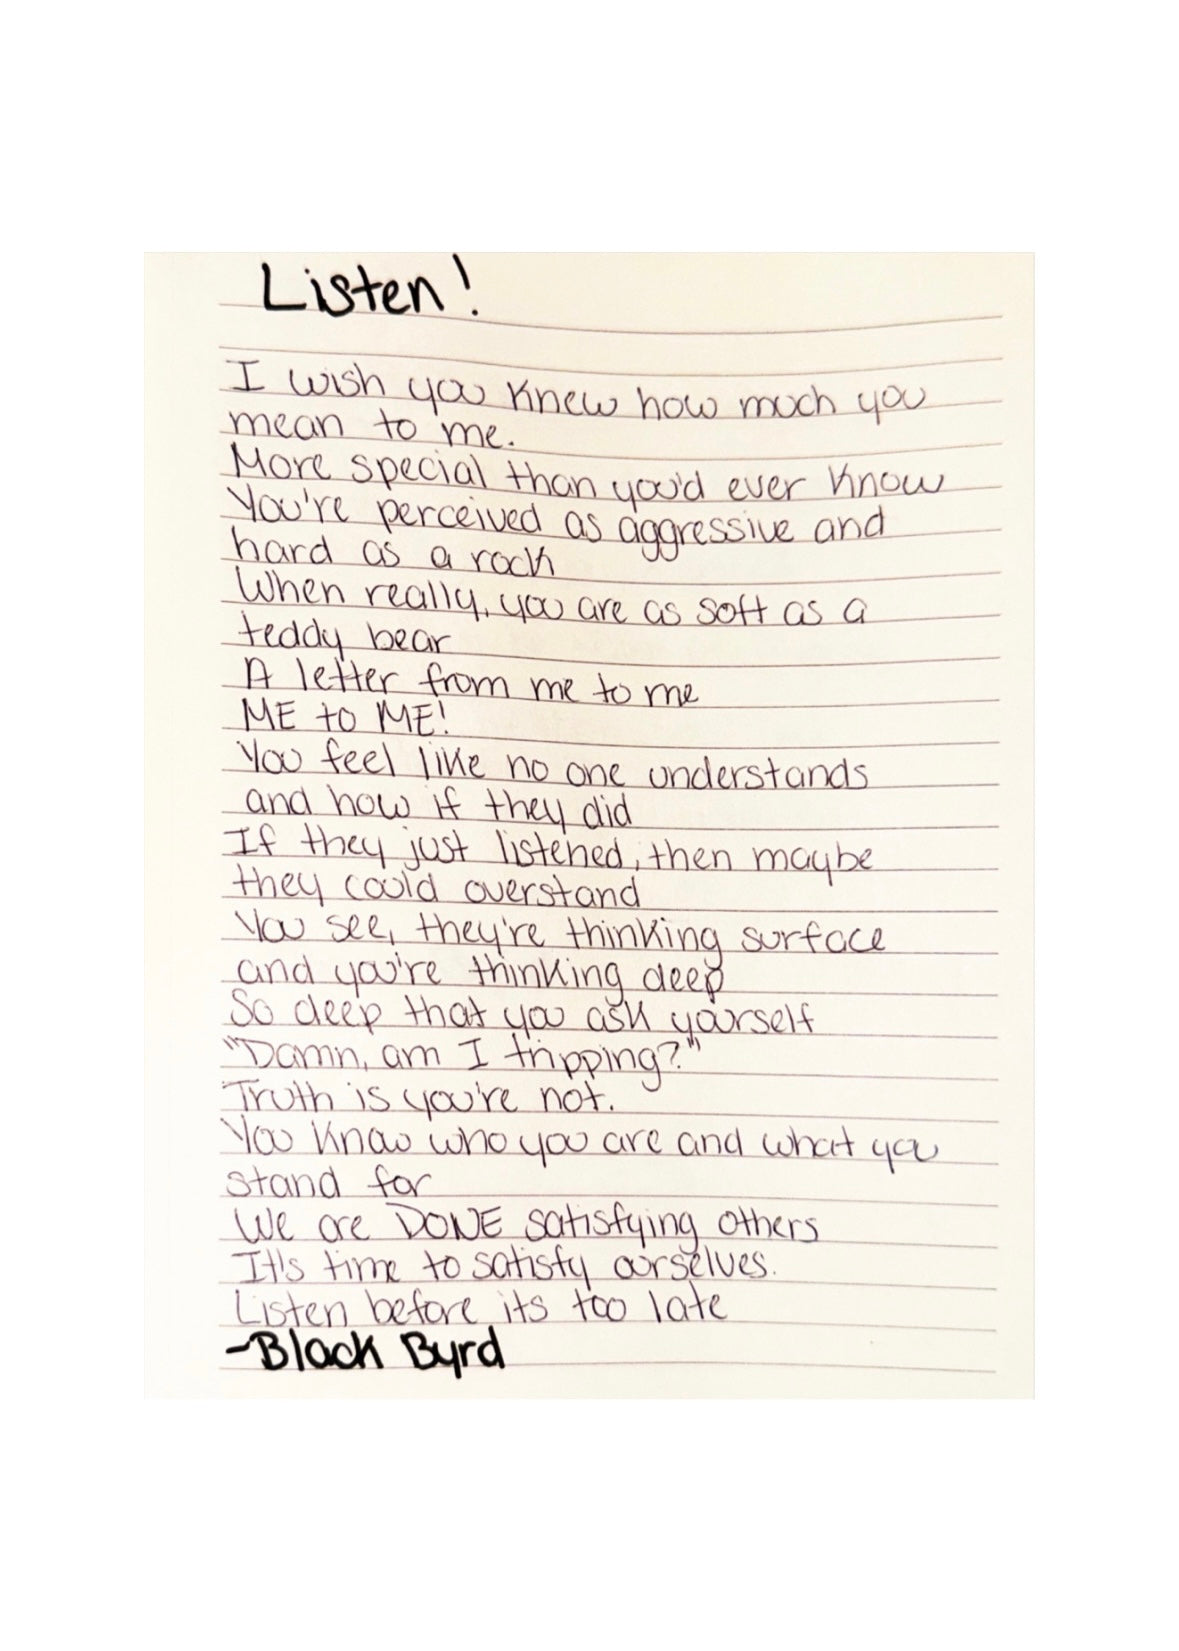 Listen!
I wish you knew how much you
mean to me.
More special than you'd ever know
You're perceived as aggressive and
hard as a rock
When really, you are as soft as a
teddy bear
A letter from me to me
ME to ME!
You feel like no one understands
and how if they did
If they just listened, then maybe
they could overstand
You see, they're thinking surface
and you're thinking deep
So deep that you ask yourself
"Damn, am I tripping?"
Truth is you're not.
You know who you are and what you
stand for
We are DONE satisfying others
It's time to satisfy ourselves.
Listen before its too late
-Black Byrd